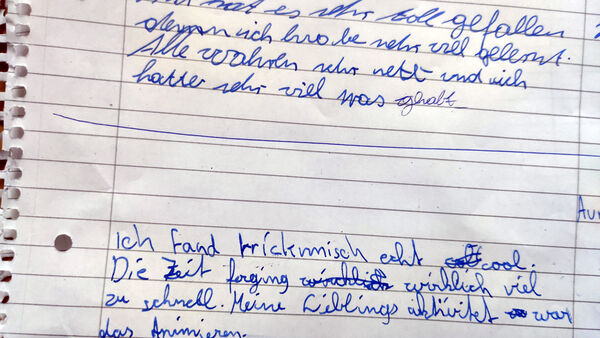 hat es sehr toll gefallen
denn ich habe sehr viel gelernt.
Alle wahren sehr nett und ich
hatte sehr viel was gehabt
Au
Ich fand trickmisch echt cool.
Die Zeit forging wirklich viel
zu schnell. Meine Lieblings aktivitet war
das Animieren.